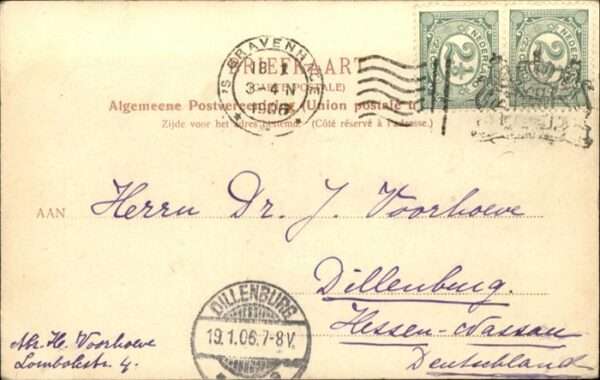 'S GRAVENHAGE
18 1
3-4 N
1906
BRIEFKAART
(CARTE POSTALE)
Algemeene Postvereeniging (Union postale u
Zijde voor het adres bestemd. (Côté réservé à l'adresse.)
2½ NEDERL
2½ NEDERL
AAN Herrn Dr. J. Voorhoeve
Dillenburg.
Hessen-Nassau
Deutschland
DILLENBURG
19.1.06.7-8V.
H. Voorhoeve
Lombokstr. 4.